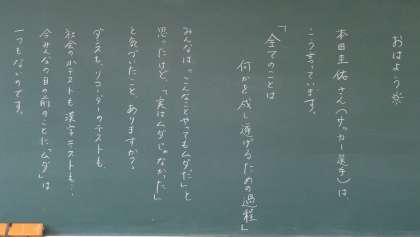 おはよう※
本田圭佑さん(サッカー選手)は
こう言っています。
「全てのことは
何かを成し遂げるための過程」
みんなは、"こんなことやってもムダだ"と
思ったけど、「実はムダじゃなかった」
と気づいたこと、ありますか?
ダンスも、リコーダーのテストも、
社会の小テストも漢字テストも…
今みんなの目の前のことに「ムダ」は
一つもないのです。